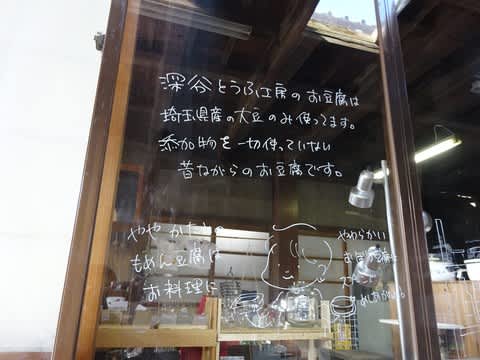 深谷とうふ工房のお豆腐は
埼玉県産の大豆のみ使ってます。
添加物を一切使っていない
昔ながらのお豆腐です。
ややかための
もめん豆腐は
お料理に
やわらかい